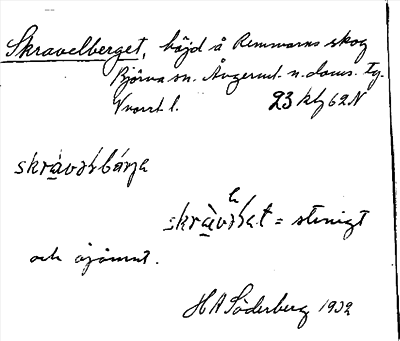 Skravelberget, höjd å Remmarns skog
Björna sn. Ångerml. n. doms. tg.
Vnorrl. l. 23 Hf 62 N
skràvəlbárja
skràvəlat = stenigt
och ojämnt.
H A Söderberg 1932